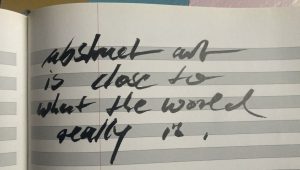 abstract art
is close to
what the world
really is.